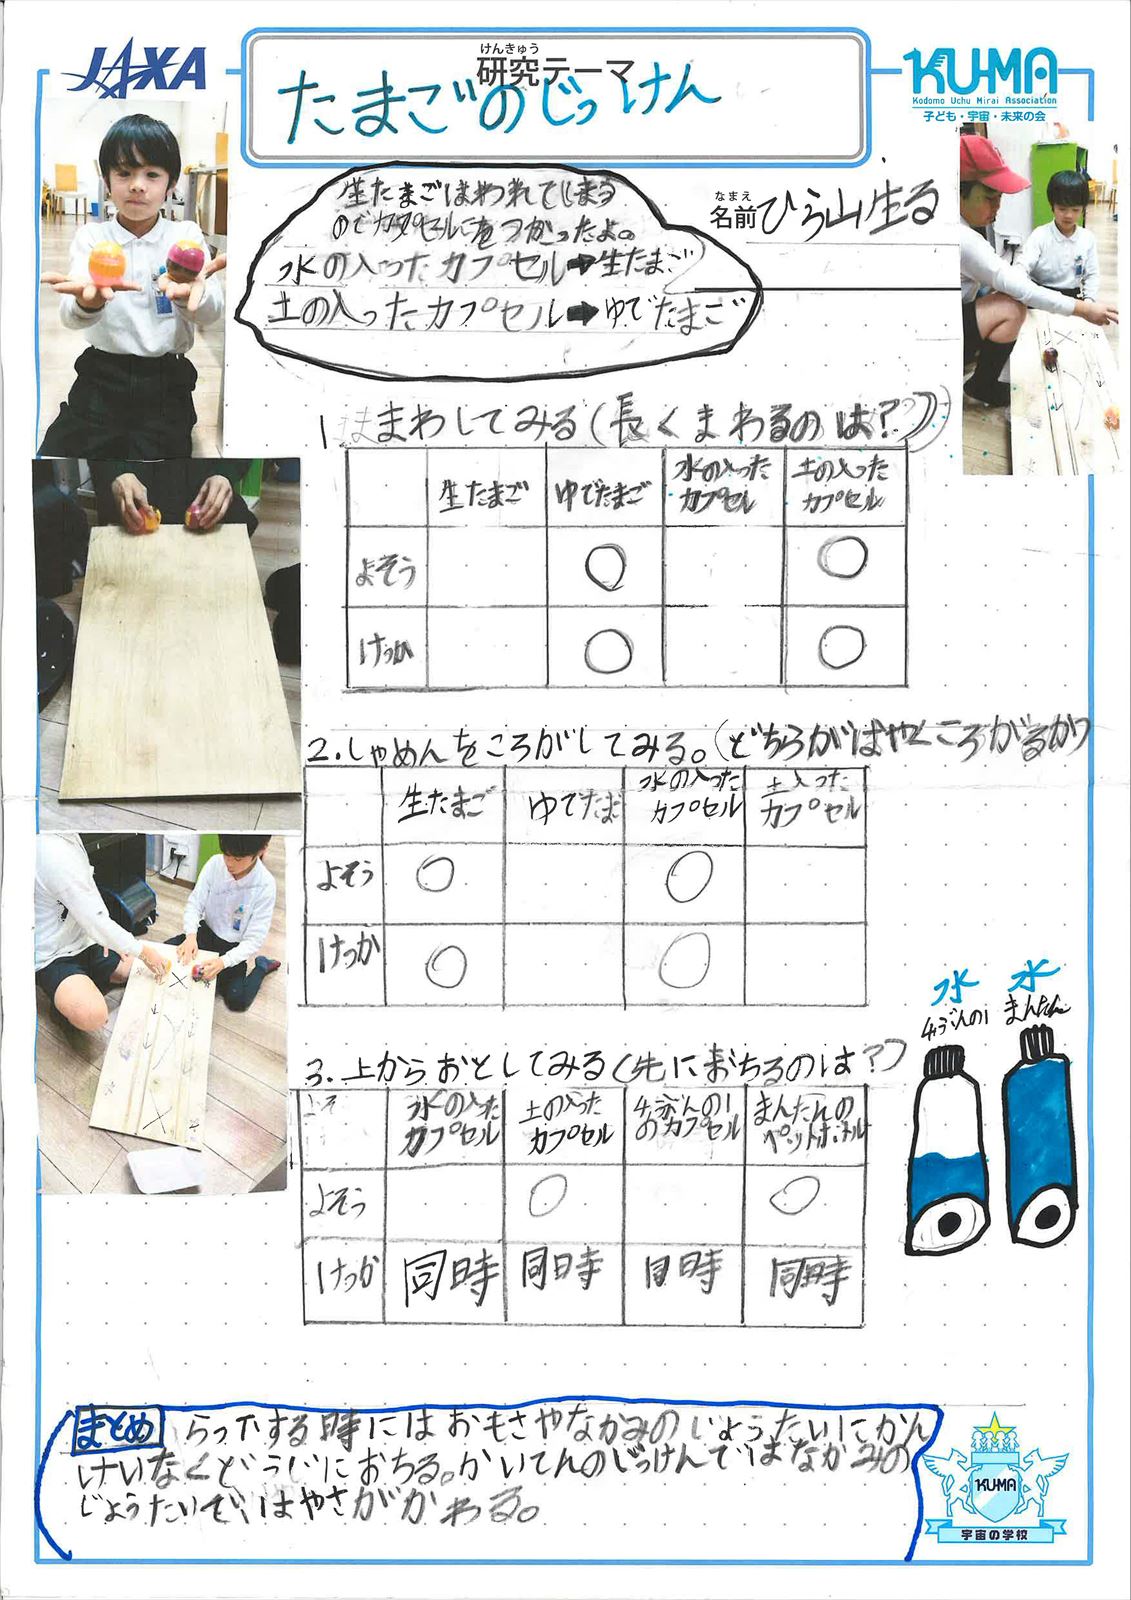 JAXA
けんきゅう
研究テーマ
たまごのじっけん
KU-MA
Kodomo Uchu Mirai Association
子ども・宇宙・未来の会
なまえ
名前 ひら山生る
生たまごはわれてしまう
のでカプセルをつかったよ。
水の入ったカプセル➡生たまご
土の入ったカプセル➡ゆでたまご
1 まわしてみる(長くまわるのは?)
生たまご ゆでたまご 水の入ったカプセル 土の入ったカプセル
よそう ○ ○
けっか ○ ○
2.しゃめんをころがしてみる。(どちらがはやくころがるか)
生たまご ゆでたまご 水の入ったカプセル 土入ったカプセル
よそう ○ ○
けっか ○ ○
水 水
4ぶんの1 まんたん
3.上からおとしてみる(先におちるのは?)
水の入ったカプセル 土の入ったカプセル 4ぶんの1のカプセル まんたんのペットボトル
よそう ○ ○
けっか 同時 同時 同時 同時
まとめ らっかする時にはおもさやなかみのじょうたいにかん
けいなくどうじにおちる。かいてんのじっけんではなかみの
じょうたいで、はやさがかわる。
KU-MA
宇宙の学校